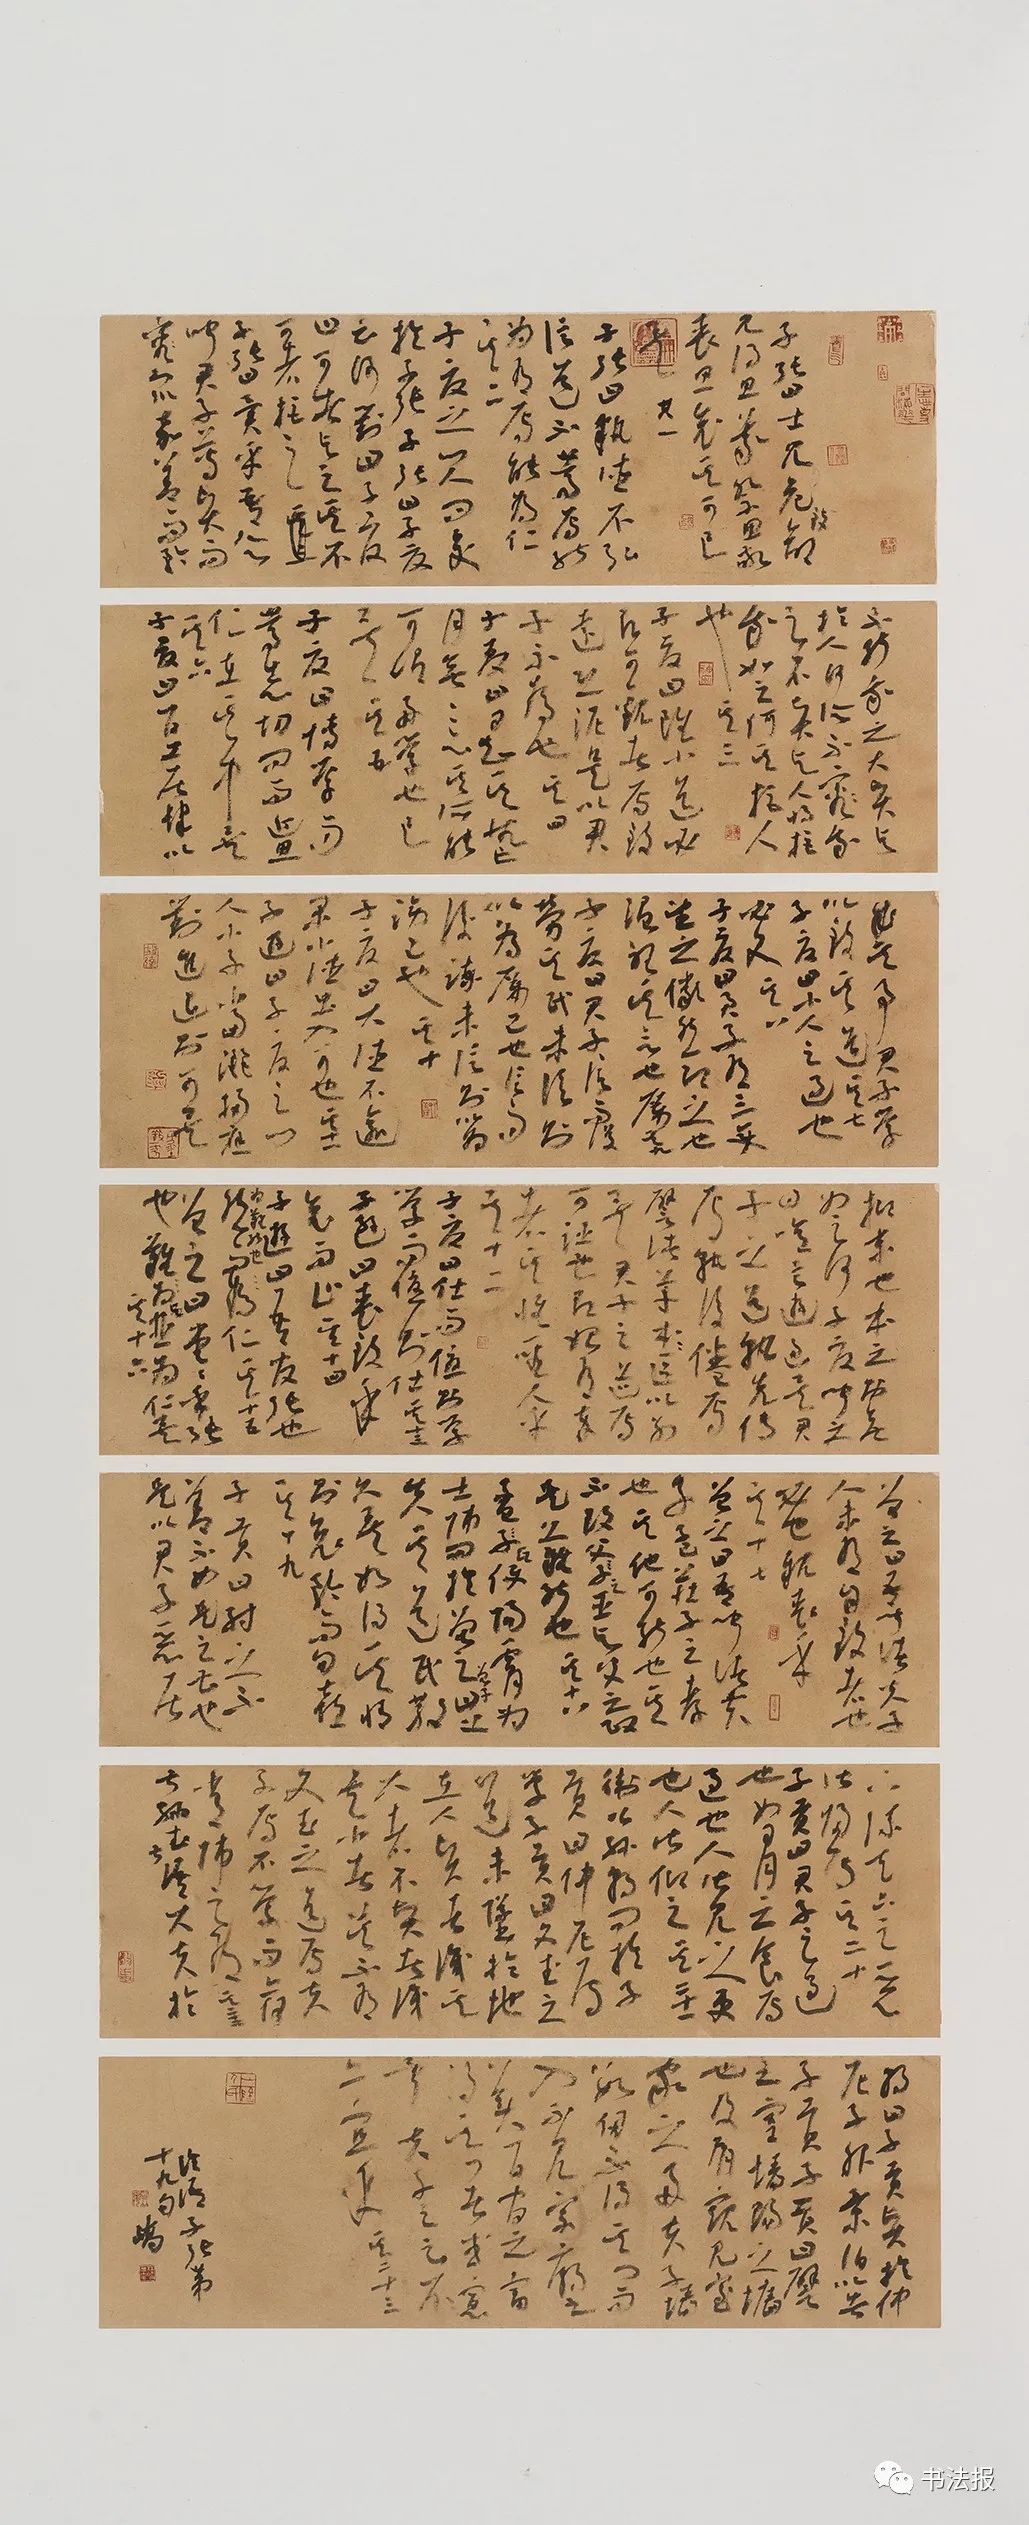 子張曰士見危致命
見得思義祭思敬
喪思哀其可已
矣 其一
子張曰執德不弘
信道不篤焉能
為有焉能為仁
其二
子夏之門人問交
於子張子張曰子夏
云何對曰子夏
曰可者與之其不
可者拒之
子張曰異乎吾所
聞君子尊賢而
容眾嘉善而矜
不能我之大賢與
於人何所不容我
之不賢與人將拒
我如之何其拒人
也 其三
子夏曰雖小道必
有可觀者焉致
遠恐泥是以君
子不為也 其四
子夏曰日知其所亡
月無忘其所能
可謂好學也已
矣 其五
子夏曰博學而
篤志切問而近思
仁在其中矣
其六
子夏曰百工居肆以
成其事君子學
以致其道其七
子夏曰小人之過也
必文 其八
子夏曰君子有三變
望之儼然即之也
溫聽其言也厲其九
子夏曰君子信而後
勞其民未信則
以為厲己也信而
後諫未信則以為
謗己也 其十
子夏曰大德不逾
閑小德出入可也其十一
子游曰子夏之門
人小子當灑掃應
對進退則可矣
抑末也本之則無
如之何子夏聞之
曰噫言游過矣君
子之道孰先傳
焉孰後倦焉
譬諸草木區以別
矣君子之道焉
可誣也有始有卒
者其惟聖人乎
其十二
子夏曰仕而優則學
學而優則仕其十三
子遊曰喪致乎
哀而止其十四
子遊曰吾友張也
為難能也
然而未仁其十五
曾子曰堂堂乎張
也難與並為仁矣
其十六
曾子曰吾聞諸夫子
人未有自致者也
必也親喪乎
其十七
曾子曰吾聞諸夫
子孟莊子之孝
也其他可能也其
不改父之臣與父之政
是之難能也 其十八
孟氏使陽膚為
士師問於曾子曾子曰上
失其道民散
久矣如得其情
則哀矜而勿喜
其十九
子貢曰紂之不
善不如是之甚也
是以君子惡居
下流天下之惡
皆歸焉其二十
子貢曰君子之過
也如日月之食焉
過也人皆見之更
也人皆仰之其二十一
衛公孫朝問於子
貢曰仲尼焉
學子貢曰文武之
道未墜於地
在人賢者識其
大者不賢者識
其小者莫不有
文武之道焉夫
子焉不學而何
常師之有其二十二
叔孫武叔語大夫於
朝曰子貢賢於仲
尼子服景伯以告
子貢子貢曰譬
之宮牆賜之牆
也及肩窺見室
家之好夫子牆
數仞不得其門而
入不見宗廟之
美百官之富
得其門者或寡
矣夫子之云不
亦宜乎其二十三
論語子張第
十九句
书法报